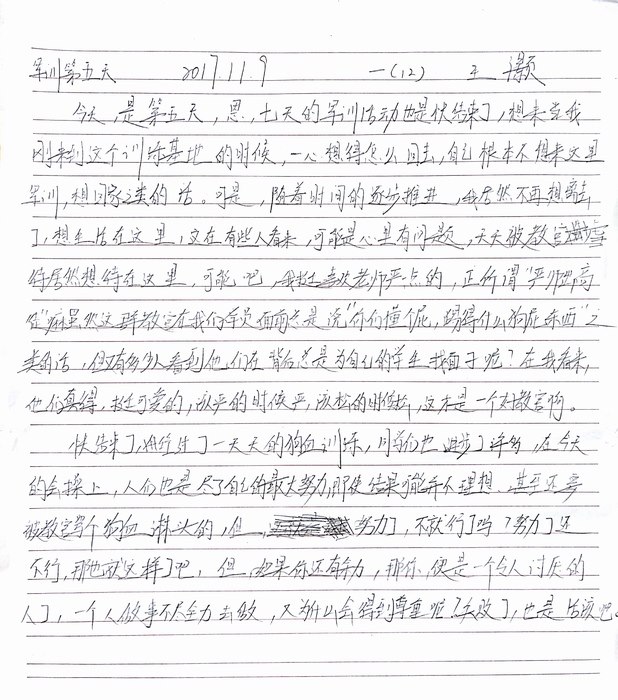 军训第五天 2017.11.9 一(12) 王灏
今天，是第五天，恩，七天的军训活动也是快结束了，想来当我
刚来到这个训练基地的时候，一心想得怎么回去，自己根本不想来这里
军训，想回家之类的话。可是，随着时间的逐步推进，我居然不再想离去
了，想生活在这里，这在有些人看来，可能是心里有问题，天天被教官
待居然想待在这里，可能吧，我挺喜欢老师严点的，正所谓“严师出高
徒”嘛虽然这群教官在我们学员面前总是说“你们懂个屁，踢得什么狗屁东西”之
类的话，但又有多少人看到他们在背后总是为自己的学生找面子呢？在我看来，
他们真得，挺可爱的，该严的时候严，该松的时候松，这才是一个好教官啊。
快结束了，一天天的狗血训练，同学们也进步了许多，在今天
的会操上，人们也是尽了自己的最大努力，即使结果可能并不理想、甚至还要
被教官骂个狗血淋头的，但，努力了，不就行了吗？努力了还
不行，那也就这样了吧，但，如果你还有余力，那你便是一个令人讨厌的
人了，一个人做事不尽全力去做，又为什么会得到尊重呢？失败了，也是活该吧。